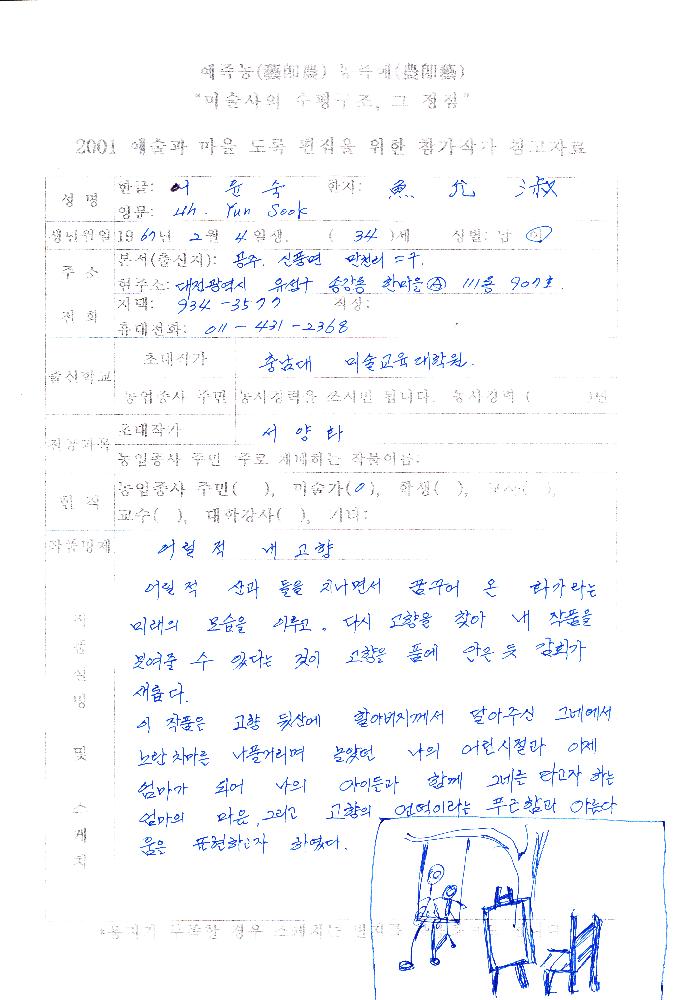 예즉농(藝卽農) 농즉예(農卽藝)
"미술사의 수평구조, 그 정점"
2001 예술과 마을 도록 편집을 위한 참가작가 참고자료
성 명 한글: 어 윤 숙 한자: 魚 允 淑
영문: Uh. Yun Sook
생년월일 1967년 2월 4일생. ( 34 )세 성별: 남 여
주 소 본적(출신지): 공주. 신풍면 만천리 = 구.
현주소: 대전광역시 유성구 송강동 한마을 Ⓐ 111동 907호.
전 화 자택: 934-3577 직장:
휴대전화: 011-431-2368
출신학교 초대작가 충남대 미술교육대학원.
농업종사 주민 농사경력을 쓰시면 됩니다. 농사경력 ( )년
전공과목 초대작가 서 양 화
농업종사 주민 주로 재배하는 작물이름:
현 직 농업종사 주민( ), 미술가(o), 학생( ), ( ),
교수( ), 대학강사( ), 기타:
작품명제 어릴 적 내 고향
작품설명 및 스케치
어릴 적 산과 들을 지나면서 꿈꾸어 온 화가라는
미래의 모습을 이루고. 다시 고향을 찾아 내 작품을
보여줄 수 있다는 것이 고향을 품에 안은 듯 감회가
새롭다.
이 작품은 고향 뒷산에 할아버지께서 달아주신 그네에서
노란 치마를 나풀거리며 놀았던 나의 어린시절과 이제
엄마가 되어 나의 아이들과 함께 그네를 타고자 하는
엄마의 마음, 그리고 고향의 언덕이라는 푸근함과 아름다
움을 표현하고자 하였다.
*용지가 부족할 경우 스케치는 별지를